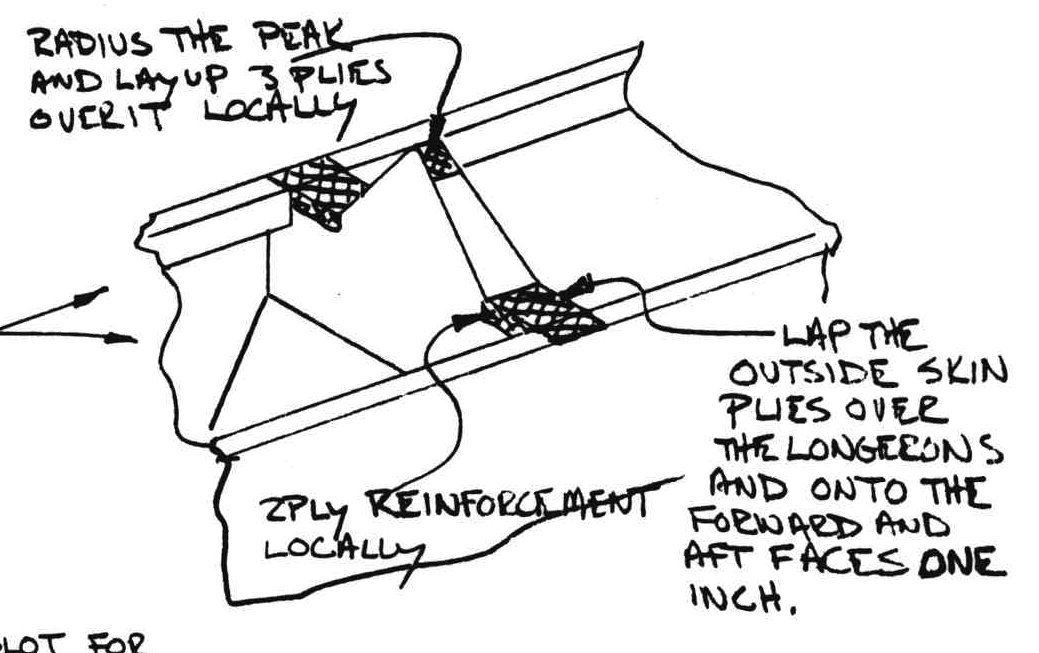 RADIUS THE PEAK
AND LAYUP 3 PLIES
OVER IT LOCALLY
LAP THE
OUTSIDE SKIN
PLIES OVER
THE LONGERONS
AND ONTO THE
FORWARD AND
AFT FACES ONE
INCH.
2PLY REINFORCEMENT
LOCALLY
FOR